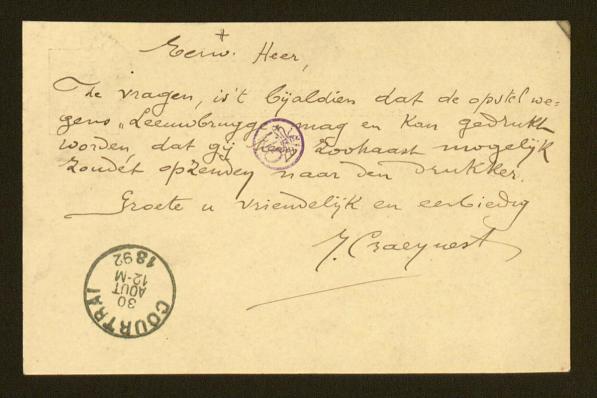 †
Eerw. Heer,
Te vragen, is't bijaldien dat de opstel we-
gens „Leeuwbrugge mag en kan gedrukt
worden dat gij zoohaast mogelijk
zoudét opzenden naar den drukker.
Groete u vriendelijk en eerbiedig
J. Craeynest
COURTRAI
30
AOUT
12-M
1892